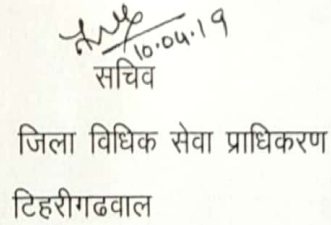 10.04.19
सचिव
जिला विधिक सेवा प्राधिकरण
टिहरीगढवाल